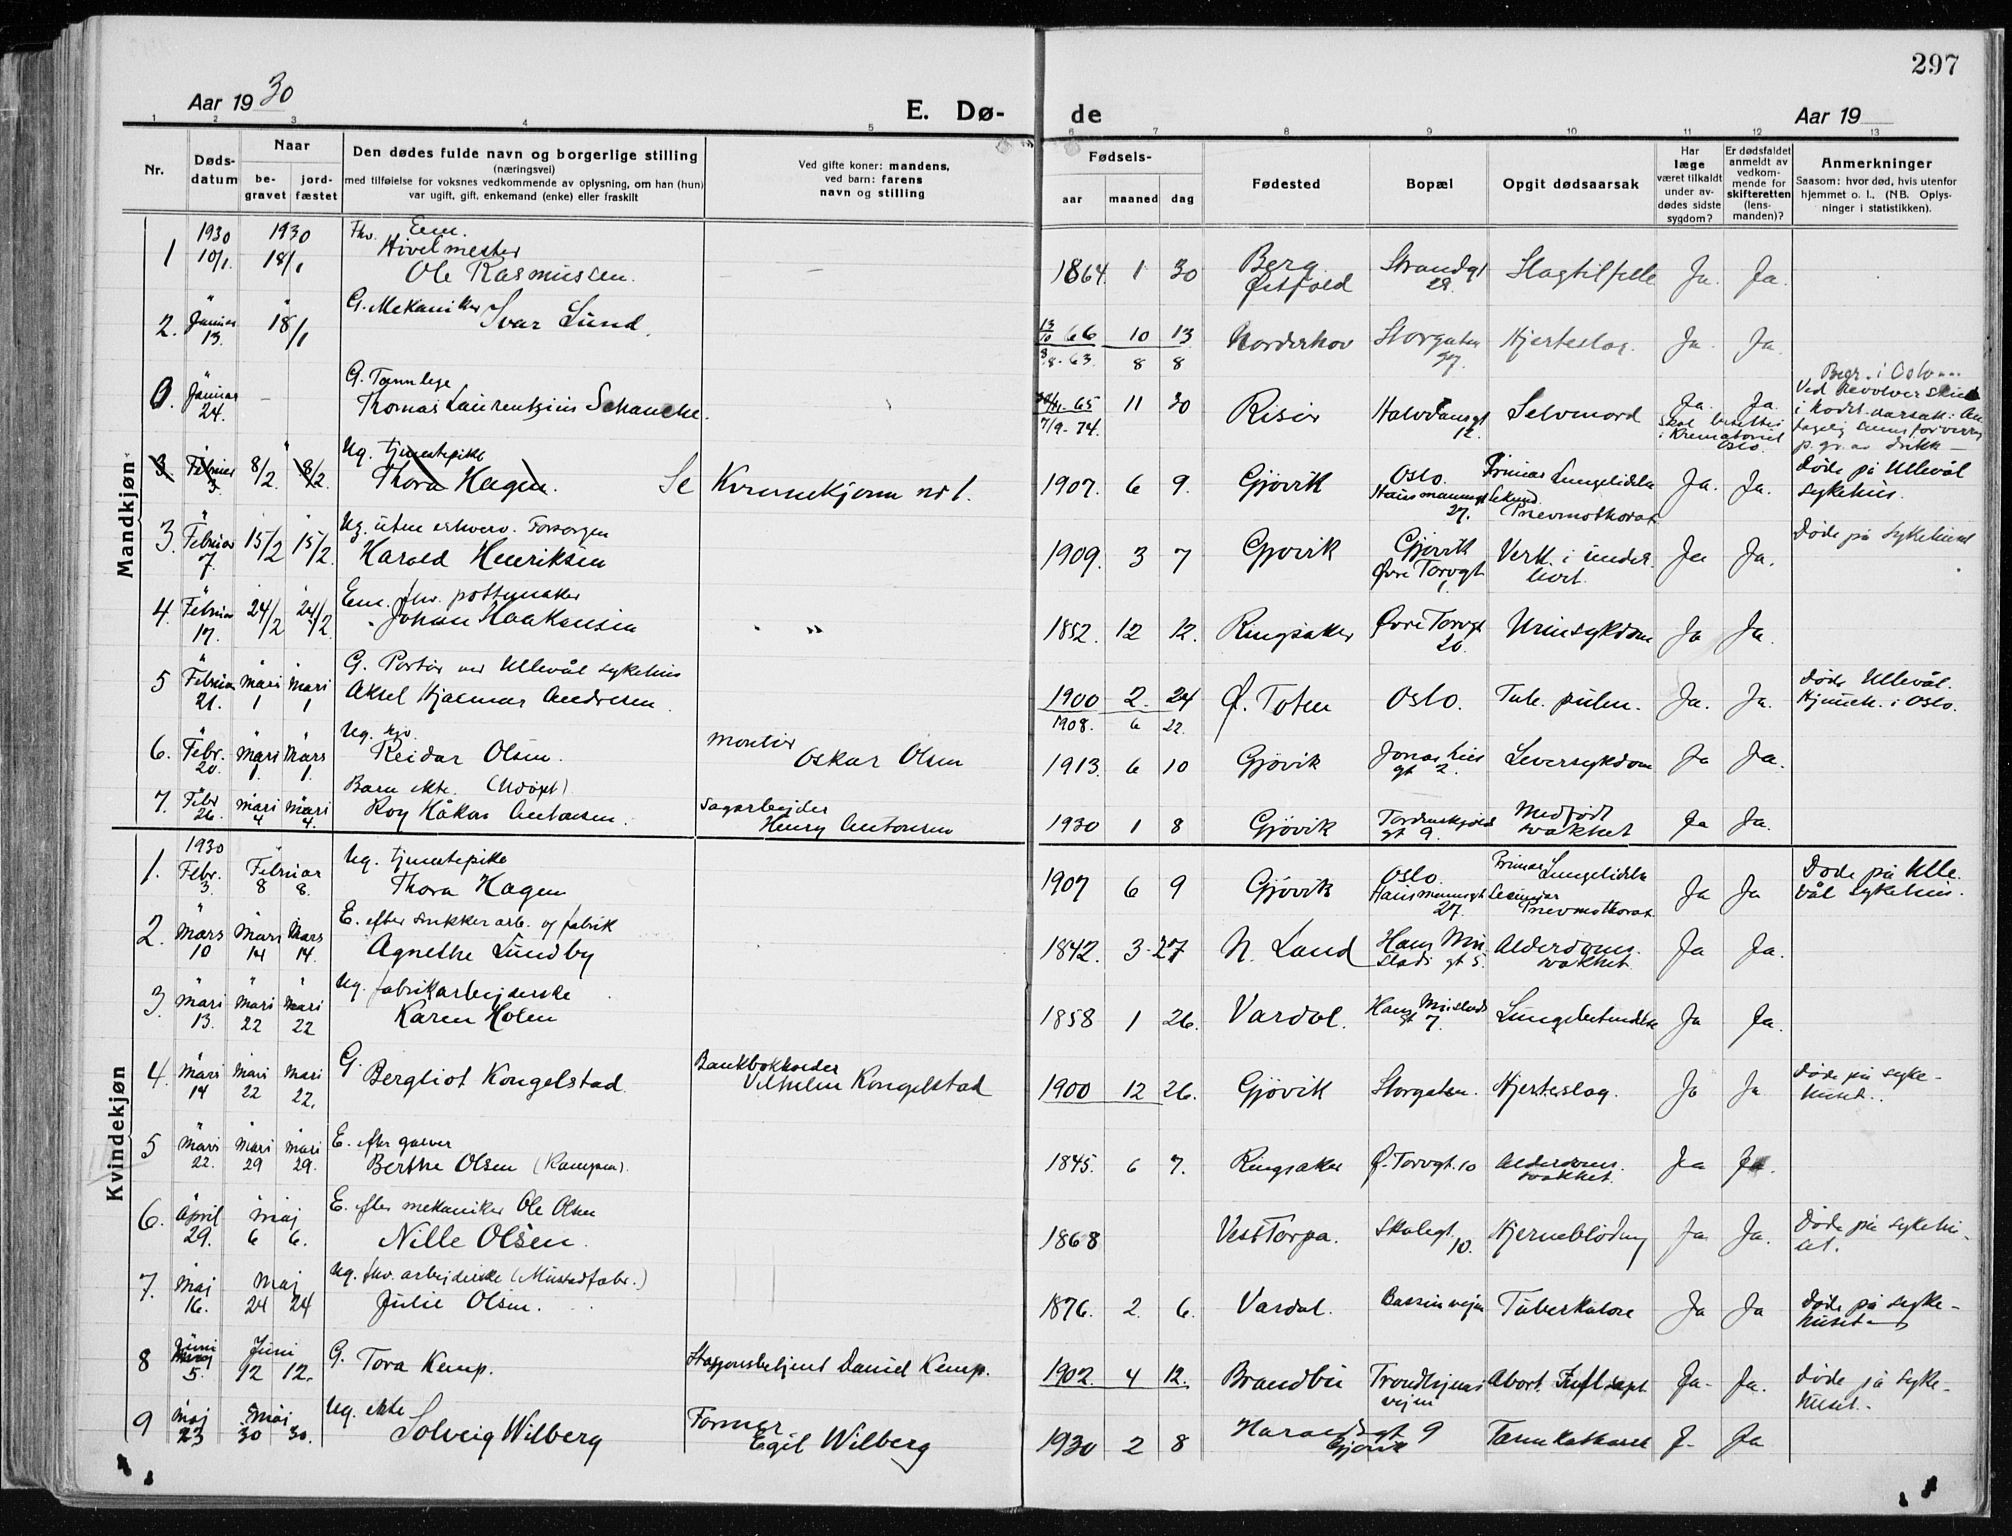 297
Aar 1930
E. Dø-
de
Aar 19
1 2 3 4 5 6 7 8 9 10 11 12 13
Nr.
Døds-
datum
Naar
be-
gravet
jord-
fæstet
Den dødes fulde navn og borgerlige stilling
(næringsvei)
med tilføielse for voksnes vedkommende av oplysning, om han (hun)
var ugift, gift, enkemand (enke) eller fraskilt
Ved gifte koner: mandens,
ved barn: farens
navn og stilling
Fødsels-
aar maaned dag
Fødested
Bopæl
Opgit dødsaarsak
Har
læge
været tilkaldt
under av-
dødes sidste
sygdom?
Er dødsfaldet
anmeldt av
vedkom-
mende for
skifteretten
(lens-
manden)?
Anmerkninger
Saasom: hvor død, hvis utenfor
hjemmet o. l., (NB. Oplys-
ninger i statistikken).
Mandkjøn
1930 1930 Fhv. Em.
Høvelmester
1 10/1. 18/1 Ole Rasmussen. 1864. 1 30 Berg Østfold Strandgt 28. Slagtilfelle Ja. Ja.
G. Mekaniker
2. Januar 13. 18/1 Ivar Lund. 13/10 66 10 13 Norderhov Storgaten 27. Hjerteslag. Ja. Ja.
8/8. 63. 8 8
G. Tannlege Begr. i Oslo
0. Januar 24. - Thomas Laurentzius Schanche. 65 11 30 Risør Halvdansgt 12. Selvmord Ja. Ja. Ved Revolverskud
7/9-74. Skal bisettes i Krematoriet Oslo. p.gr.av drikk
Ug. tjenestepike
3. Februar 3. 8/2 8/2. Thora Hagen. Se Kvinnekjønn nr 1. 1907. 6 9. Gjøvik Oslo. Hausmannsgt 27. Primær Lungelidelse Sekund. Pnevmothorax Ja. Ja. Døde på Ullevål sykehus.
Ug. uten erhverv. Forsorgen
3. Februar 7. 15/2 15/2. Harald Henriksen 1909. 3 7 Gjøvik Gjøvik Øvre Torvgt 1. Verk. i underlivet. Ja Ja. Døde på Sykehuset
Em. fhv. pottemaker
4. Februar 17. 24/2 24/2. Johan Haakensen 1852. 12 12. Ringsaker Øvre Torvgt 20. Urinsykdom Ja Ja.
G. Portør ved Ullevål sykehus
5 Februar 21. mars 1 mars 1 Aksel Hjalmar Andresen. 1900 2. 24 Ø. Toten Oslo. Tub. pulm. Ja. Ja. Døde Ullevål. i Oslo.
1908. 6 22.
Ug.
6. Febr. 20. mars 1. Mars 1. Reidar Olsen. montør Oskar Olsen 1913. 6 10 Gjøvik Jonas Lies gt 2. Leversykdom Ja Ja.
Barn ekte. (Udøpt)
7. Febr 26. mars 4 mars 4. Roy Håkon Antonsen. Sagarbeider Henry Antonsen 1930 1 8 Gjøvik Tordenskjolds gt 9. Medfødt svakhet Ja Ja.
Kvindekjøn
1930
Ug. tjenestepike
1. Febr. 3. Februar 8 8. Thora Hagen 1907 6 9 Gjøvik Oslo. Hausmannsgt 27. Primær Lungelidelse Secundær Pnevmothorax Ja Ja Døde på Ullevål Sykehus.
E. efter snikkerarb. og fabrik
2. Mars 10 Mars 14 Mars 14. Agnethe Lundby 1842. 3. 27 N. Land Hans Mustads gt 5. Alderdoms. svakhet. Ja Ja.
Ug. fabrikarbejderske
3. mars 13. mars 22 mars 22 Karen Holen 1858 1 26. Vardal. Hans Mustads gt 7. Lungebetendelse Ja Ja.
4. mars 14 mars 22 mars 22. G. Bergliot Kongelstad Bankbokholder Vilhelm Kongelstad 1900 12 26. Gjøvik Storgaten. Hjerteslag. Ja Ja Døde på sykehuset.
E. efter garver
5 mars 22. mars 29 mars 29. Berthe Olsen 1845. 6 7. Ringsaker Ø. Torvgt. 10 Alderdoms. svakhet. Ja Ja.
E. efter mekaniker Ole Olsen
6. April 29. maj 6 6. Nille Olsen. 1868 Vest Torpa. Skolegt. 10. Hjerneblødning Ja Ja. Døde på sykehuset.
Ug. fhv. arbejderske (Mustadfabr.)
7. maj 16. Maj 24 24 Julie Olsen. 1876. 2. 6. Vardal. Bassinvejen Tuberkulose Ja Ja Døde på sykehuset
8 Juni 5. Juni 12 12. G. Tora Kemp. Stasjonsbetjent Daniel Kemp. 1902. 4 12. Brandbu Trondhjemsvejen Abort. Infl. sept. Ja. Ja. Døde på sykehuset.
Ug. ekte
9 maj 23 maj 30 30. Solveig Wilberg Former Egil Wilberg 1930 2 8 Haraldsgt 9 Gjøvik Tarmkatharrh J. Ja